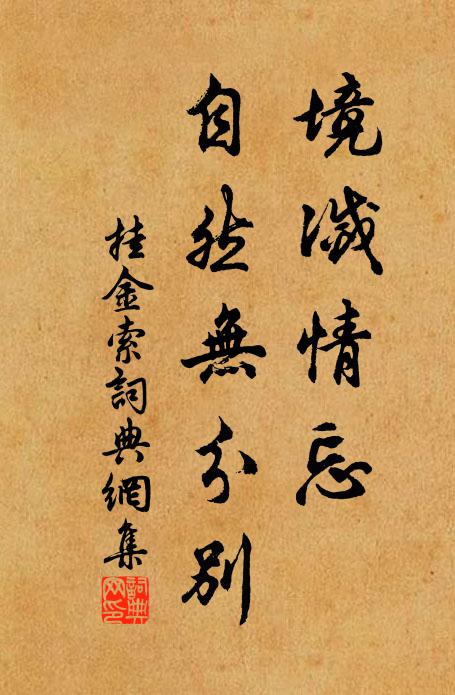 境滅情忘
自然無分別
挂金索詞典網集
詞典網印